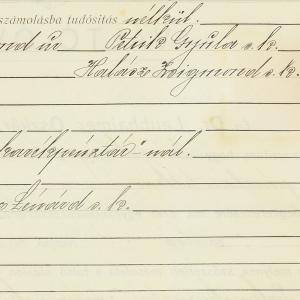 számolásba tudósítás nélkül.
ond úr Petrik Gyula s. k.
Halász Zsigmond s. k.
takarékpénztár"-nál.
Lénárd s. k.